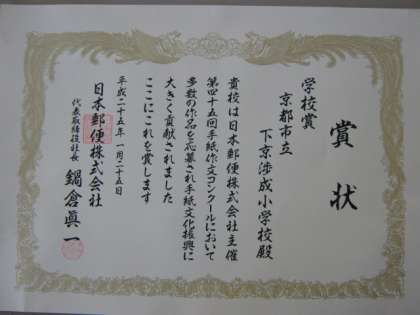 賞状
学校賞
京都市立
下京渉成小学校殿
貴校は日本郵便株式会社主催
第四十五回手紙作文コンクールにおいて
多数の作品を応募され手紙文化振興に
大きく貢献されました
ここにこれを賞します
平成二十五年 一月二十五日
日本郵便株式会社
代表取締役社長 鍋倉眞一